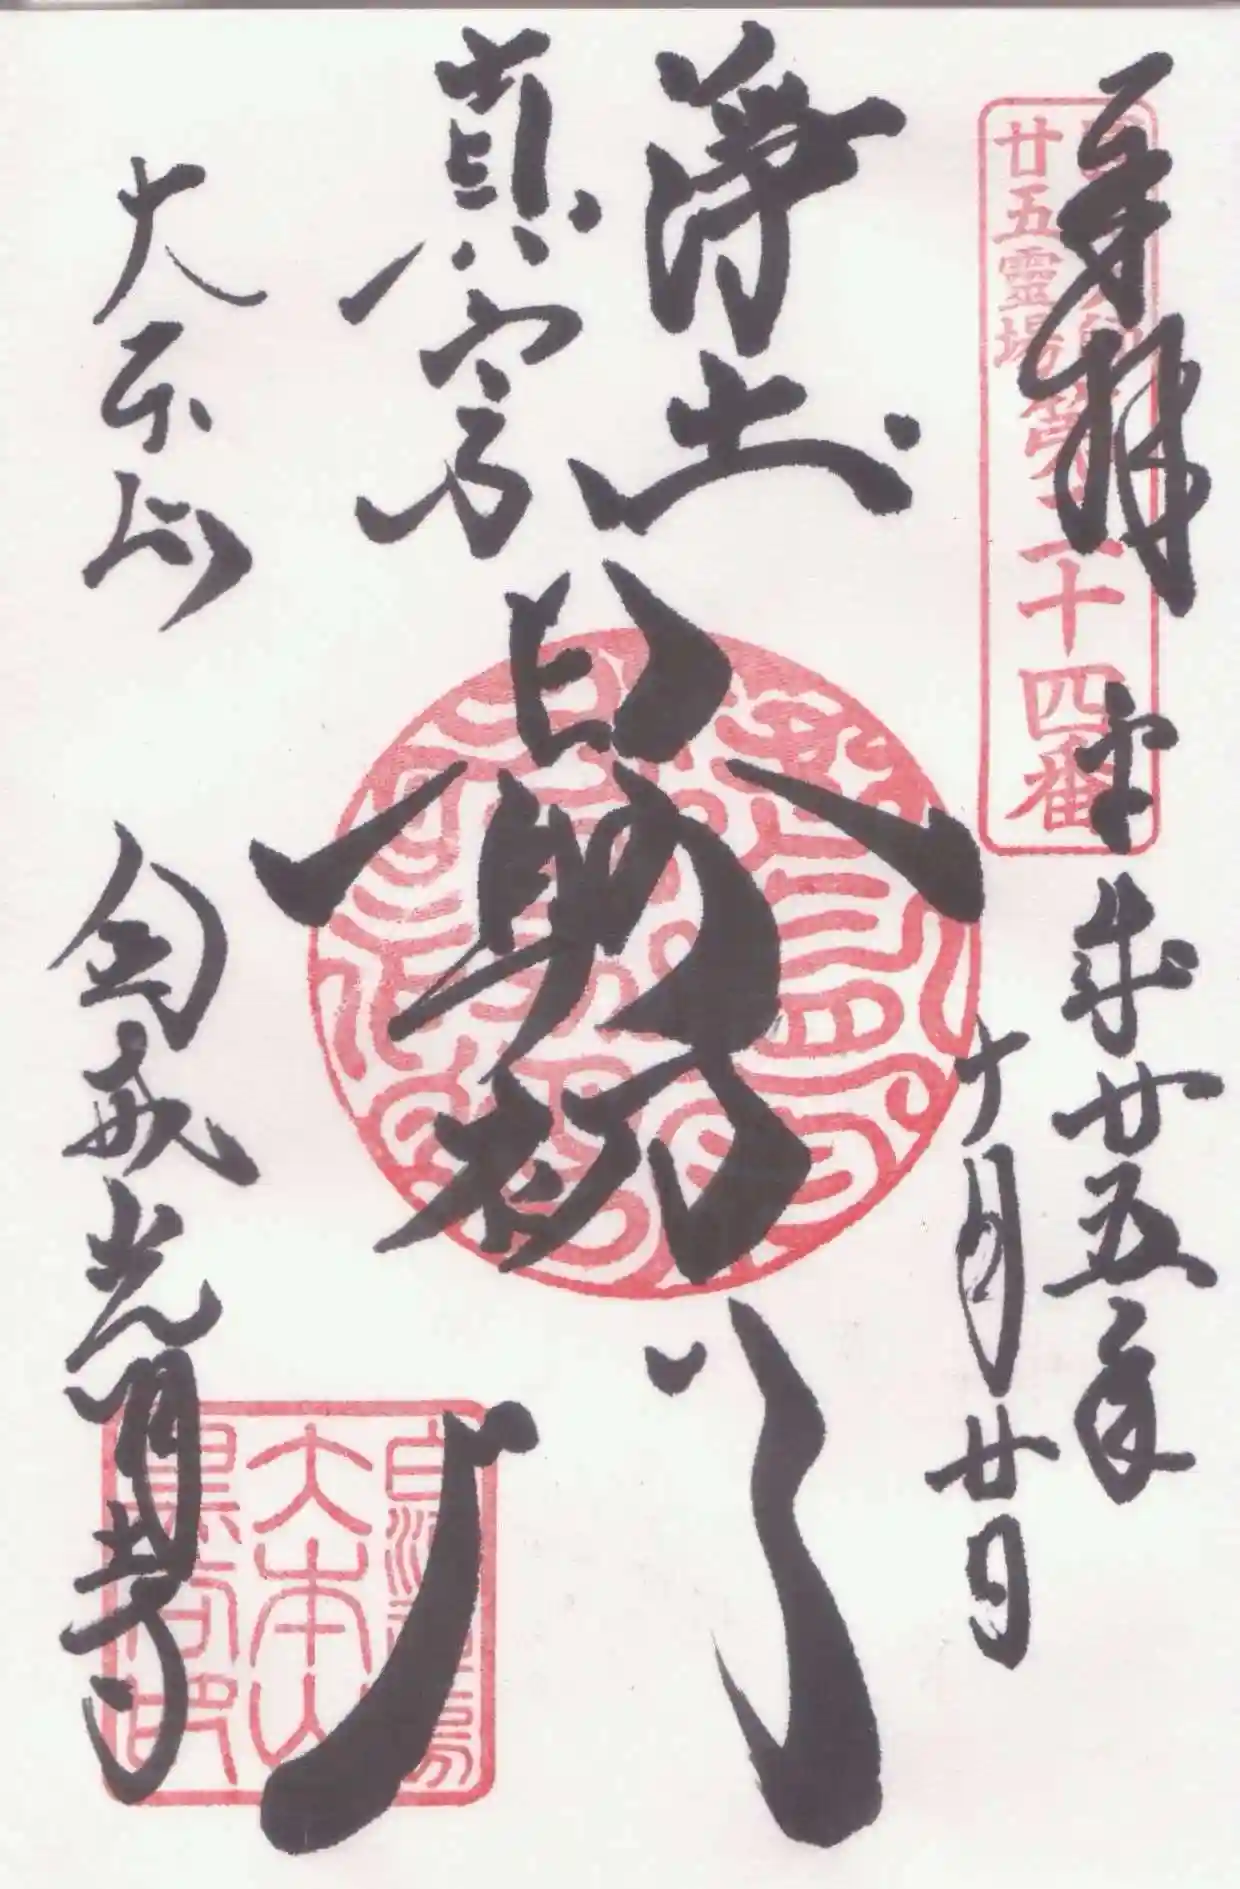 奉拝
平成廿五年
十月廿日
廿五霊場
第二十四番
浄土
真宗
最初門
大本山
金戒光明寺
大本山